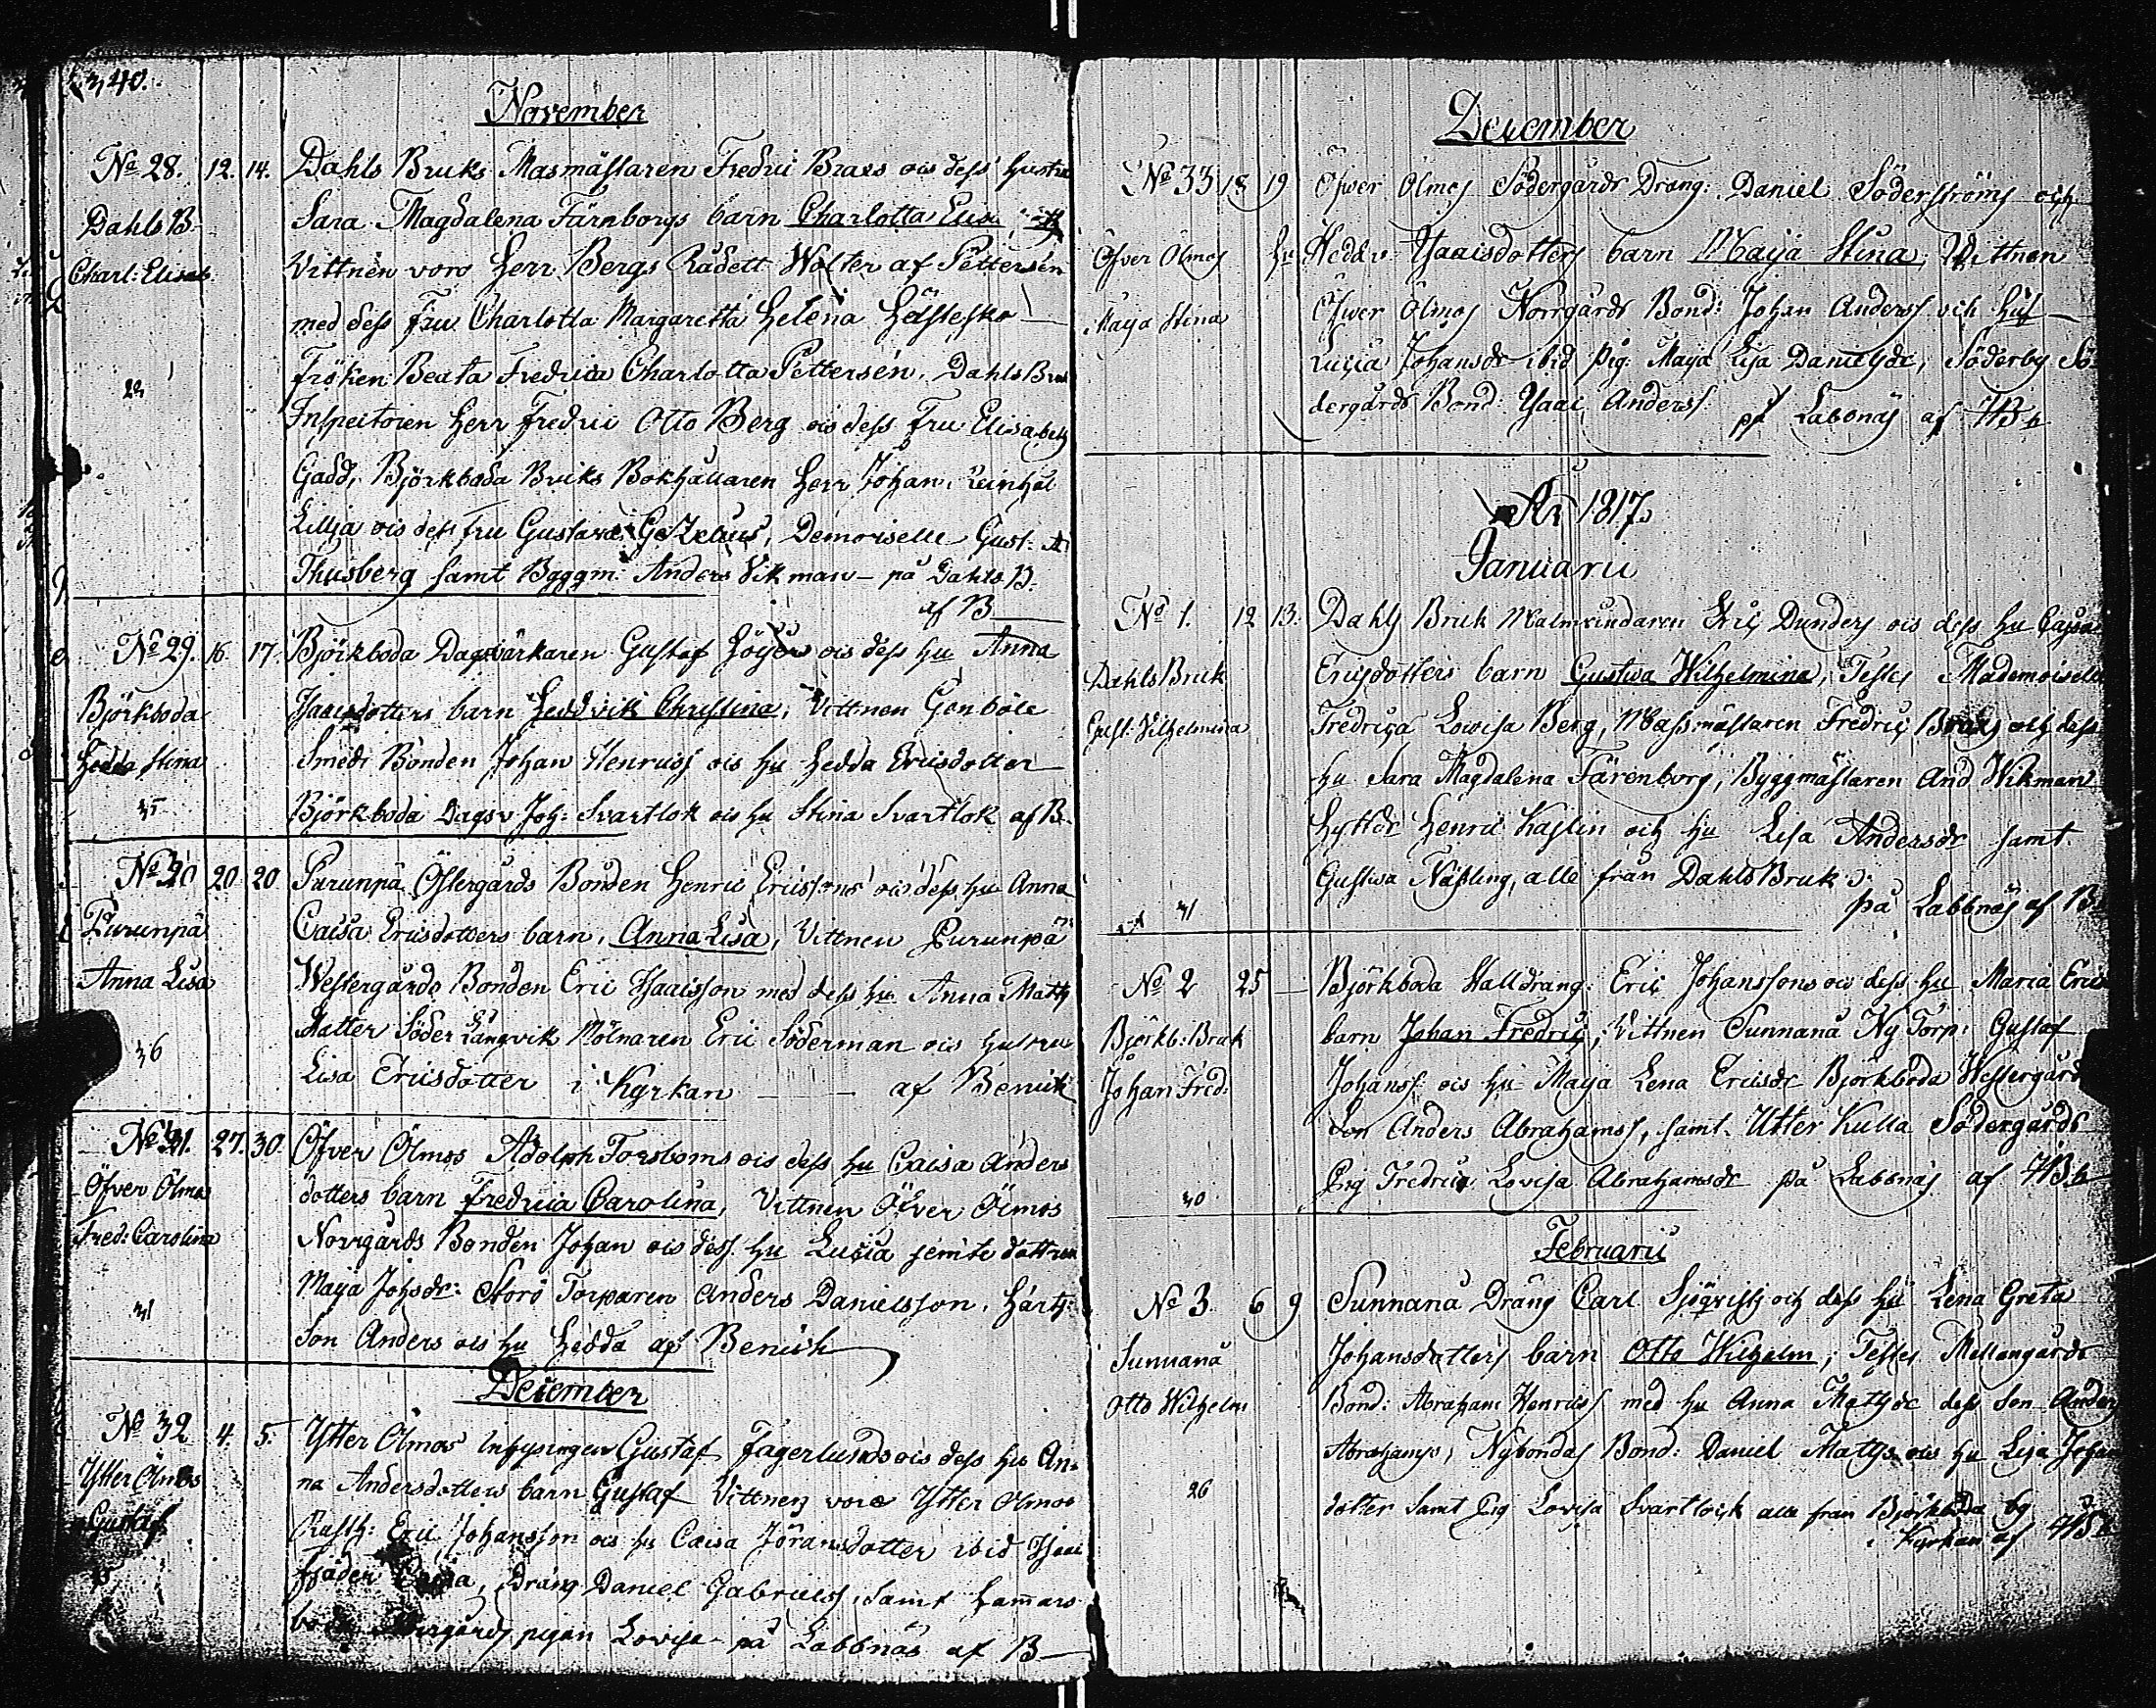 340.
November
No 28. 12. 14. Dahls Bruks Masmästaren Fredric Braxs ocs dess hustru
Dahls B. Sara Magdalena Färnborgs barn Charlotta Elis
Charl: Elisab Vittnen voro Herr Bergs Rådett Wolter af Pettersén
med dess Fru Charlotta Margaretta Helena Hästesko
Fröken Beata Fredrica Charlotta Pettersén, Dahls Bruk
Inspectoren Herr Fredric Otto Berg ocs dess Fru Elisabeth
Gadd, Björkboda Bruks Bokhållaren Herr Johan Reinhål
Lillja ocs dess Fru Gustava Gezelius, Demoiselle Gust: A
Thusberg samt Byggm: Anders Vikman på Dahls B.
af B
No 29. 16. 17. Björkboda Dagsvärkaren Gustaf ocs dess hu Anna
Björkboda Isaacsdotters barn Heddvik Christina, Vittnen Genböle
Hedda Stina Smeds Bonden Johan Henricss ocs hu Hedda Ericsdotter
35 Björkboda Dagsv Joh: Svartlok ocs hu Stina Svartlok af B.
No 30 20 20 Purunpä Östergårds Bonden Henric Ericssons ocs dess hu Anna
Purunpä Caisa Ericsdotters barn, Anna Lisa, Vittnen Purunpä
Anna Lisa Westergårds Bonden Eric Isaacsson med dess hu Anna Math
36 dotter Söder Långvik Mölnaren Eric Söderman ocs hustru
Lisa Ericsdotter i Kyrkan af Benick
No 31. 27. 30. Öfver Ölmos Adolph Forsboms ocs dess hu Caisa Anders
Öfver Ölmos dotters barn Fredrica Carolina, Vittnen Öfver Ölmos
Fred: Carolina Norrgårds Bonden Johan ocs dess hu Lucia jemte dottren
31 Maja Johsdr: Storö Torparen Anders Danielsson,
Son Anders ocs hu Hedda af Benick
December
No 32 4. 5. Ytter Ölmos Inhysingen Gustaf Fagerlunds ocs dess hu An-
Ytter Ölmos na Andersdotters barn Gustaf Vittnen voro Ytter Ölmos
Gustaf Rusth: Eric Johansson ocs hu Caisa Jöransdotter ibid Isaac
Dräng Daniel Gabrielss, samt Hammars
pigan Lovisa på Labbnäs af B
December
No 33 18 19 Öfwer Ölmos Södergårds Dräng: Daniel Söderströms och
Öfver Ölmos hu Hedda Isaacsdotters barn Maija Stina; Vittnen
Maija Stina Öfwer Ölmos Norrgårds Bond: Johan Anderss och hus
Lucia Johansdr ibid pig: Maja Lisa Danielsdr, Söderby Sö-
dergårds Bond: Isaac Anderss på Labbnäs af HBk
År 1817.
Januarii
No 1. 12 13. Dahls Bruk Malmvindaren Eric Dunders ocs dess hu Cajsa
Dahls Bruk Ericsdotters barn Gustwa Wilhelmina, Testes Mademoiselle
Gust: Vilhelmina Fredrica Lowisa Berg, Massmästaren Fredric Braxs och dess
hu Sara Magdalena Färenborg, Byggmästaren And Wikman
Hyttdr Henric Kaslin och hu Lisa Andersdr samt
Gustwa Näsling, alla från Dahls Bruk
31 på Labbnäs af B
No 2 25 Björkboda Stalldräng: Eric Johanssons ocs dess hu Maria Erics
Björkb: Bruk barn Johan Fredric; Vittnen Sunnanå Ny Torp: Gustaf
Johan Fred: Johanss: ocs hu Maja Lena Ericsdr Björkboda Westergård
Son Anders Abrahamss, samt Utter Kulla Södergårds
30 Pig Fredrica Lovisa Abrahamsdr på Labbnäs af HBk
Februarii
No 3. 6 9 Sunnanå Dräng Carl Sjöqvists och dess hu Lena Greta
Sunnanå Johansdotters barn Otto Wilhelm; Testes Mellangårds
Otto Wilhelm Bond: Abraham Henricss med hu Anna Mattsdr dess Son Anders
Abrahamss, Nybondas Bond: Daniel Mattss ocs hu Lisa Johans
26 dotter samt Pig Lovisa Svartlock alla från Björkboda by
i Kyrkan af HBk